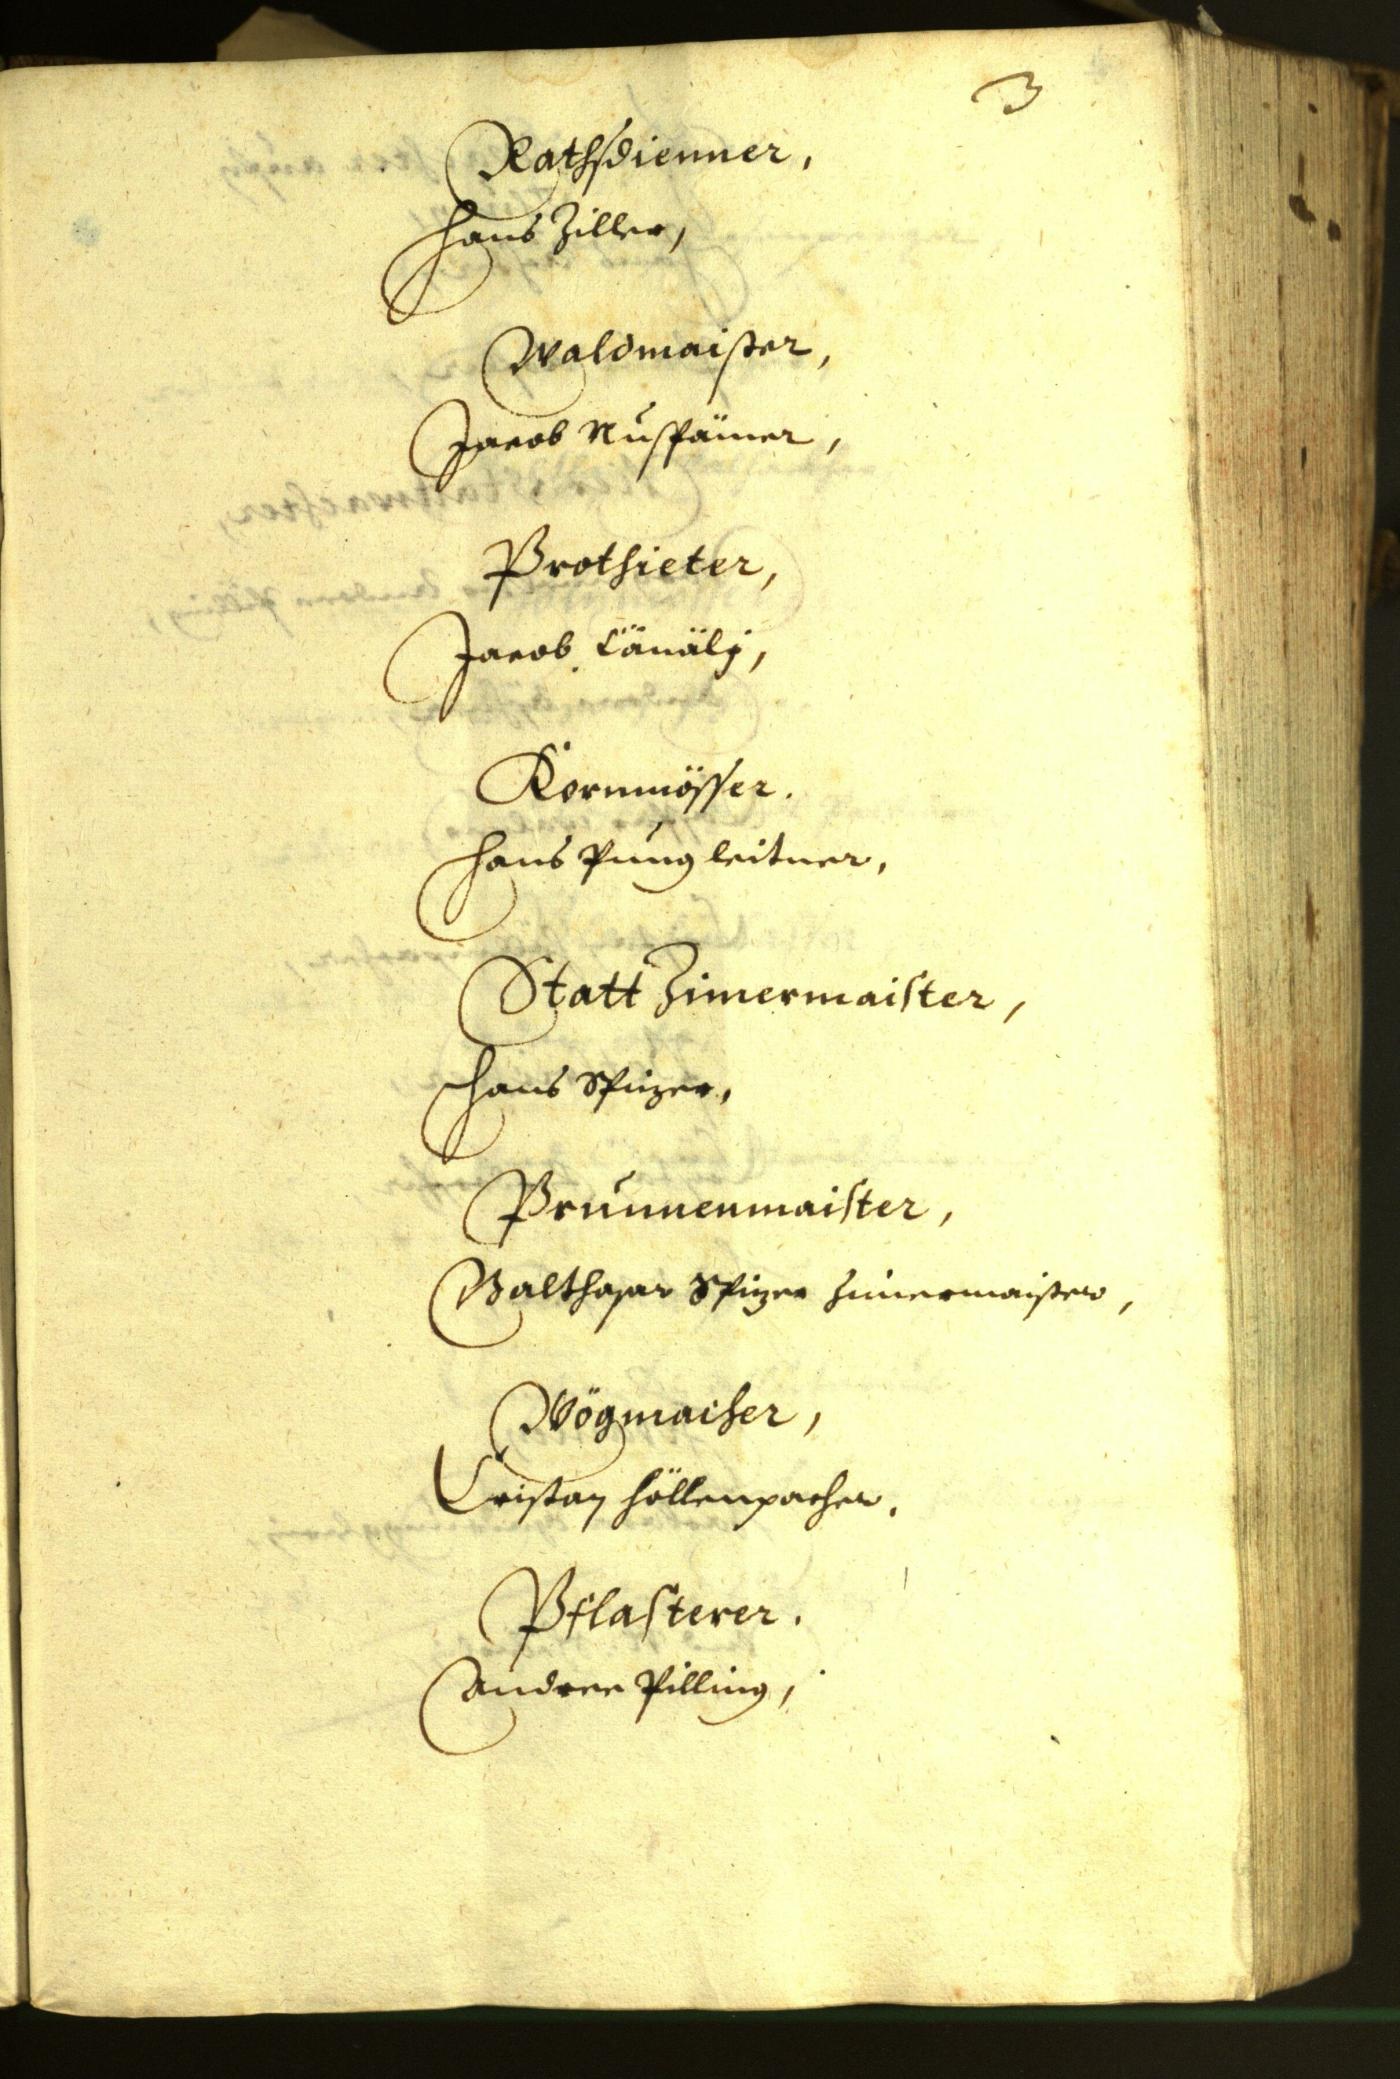 3
Rathsdienner,
Hans Ziller,
Waldmaister,
Jacob Nuspämer,
Prothieter,
Jacob Cänälj,
Kornmösser.
Hans Pungleitner,
Statt Zimermaister,
Hans Spizer,
Prunnenmaister,
Balthasar Spizer Zimermaister,
Wögmacher,
Cristan Höllenpacher.
Pflasterer.
Andree Pilling,